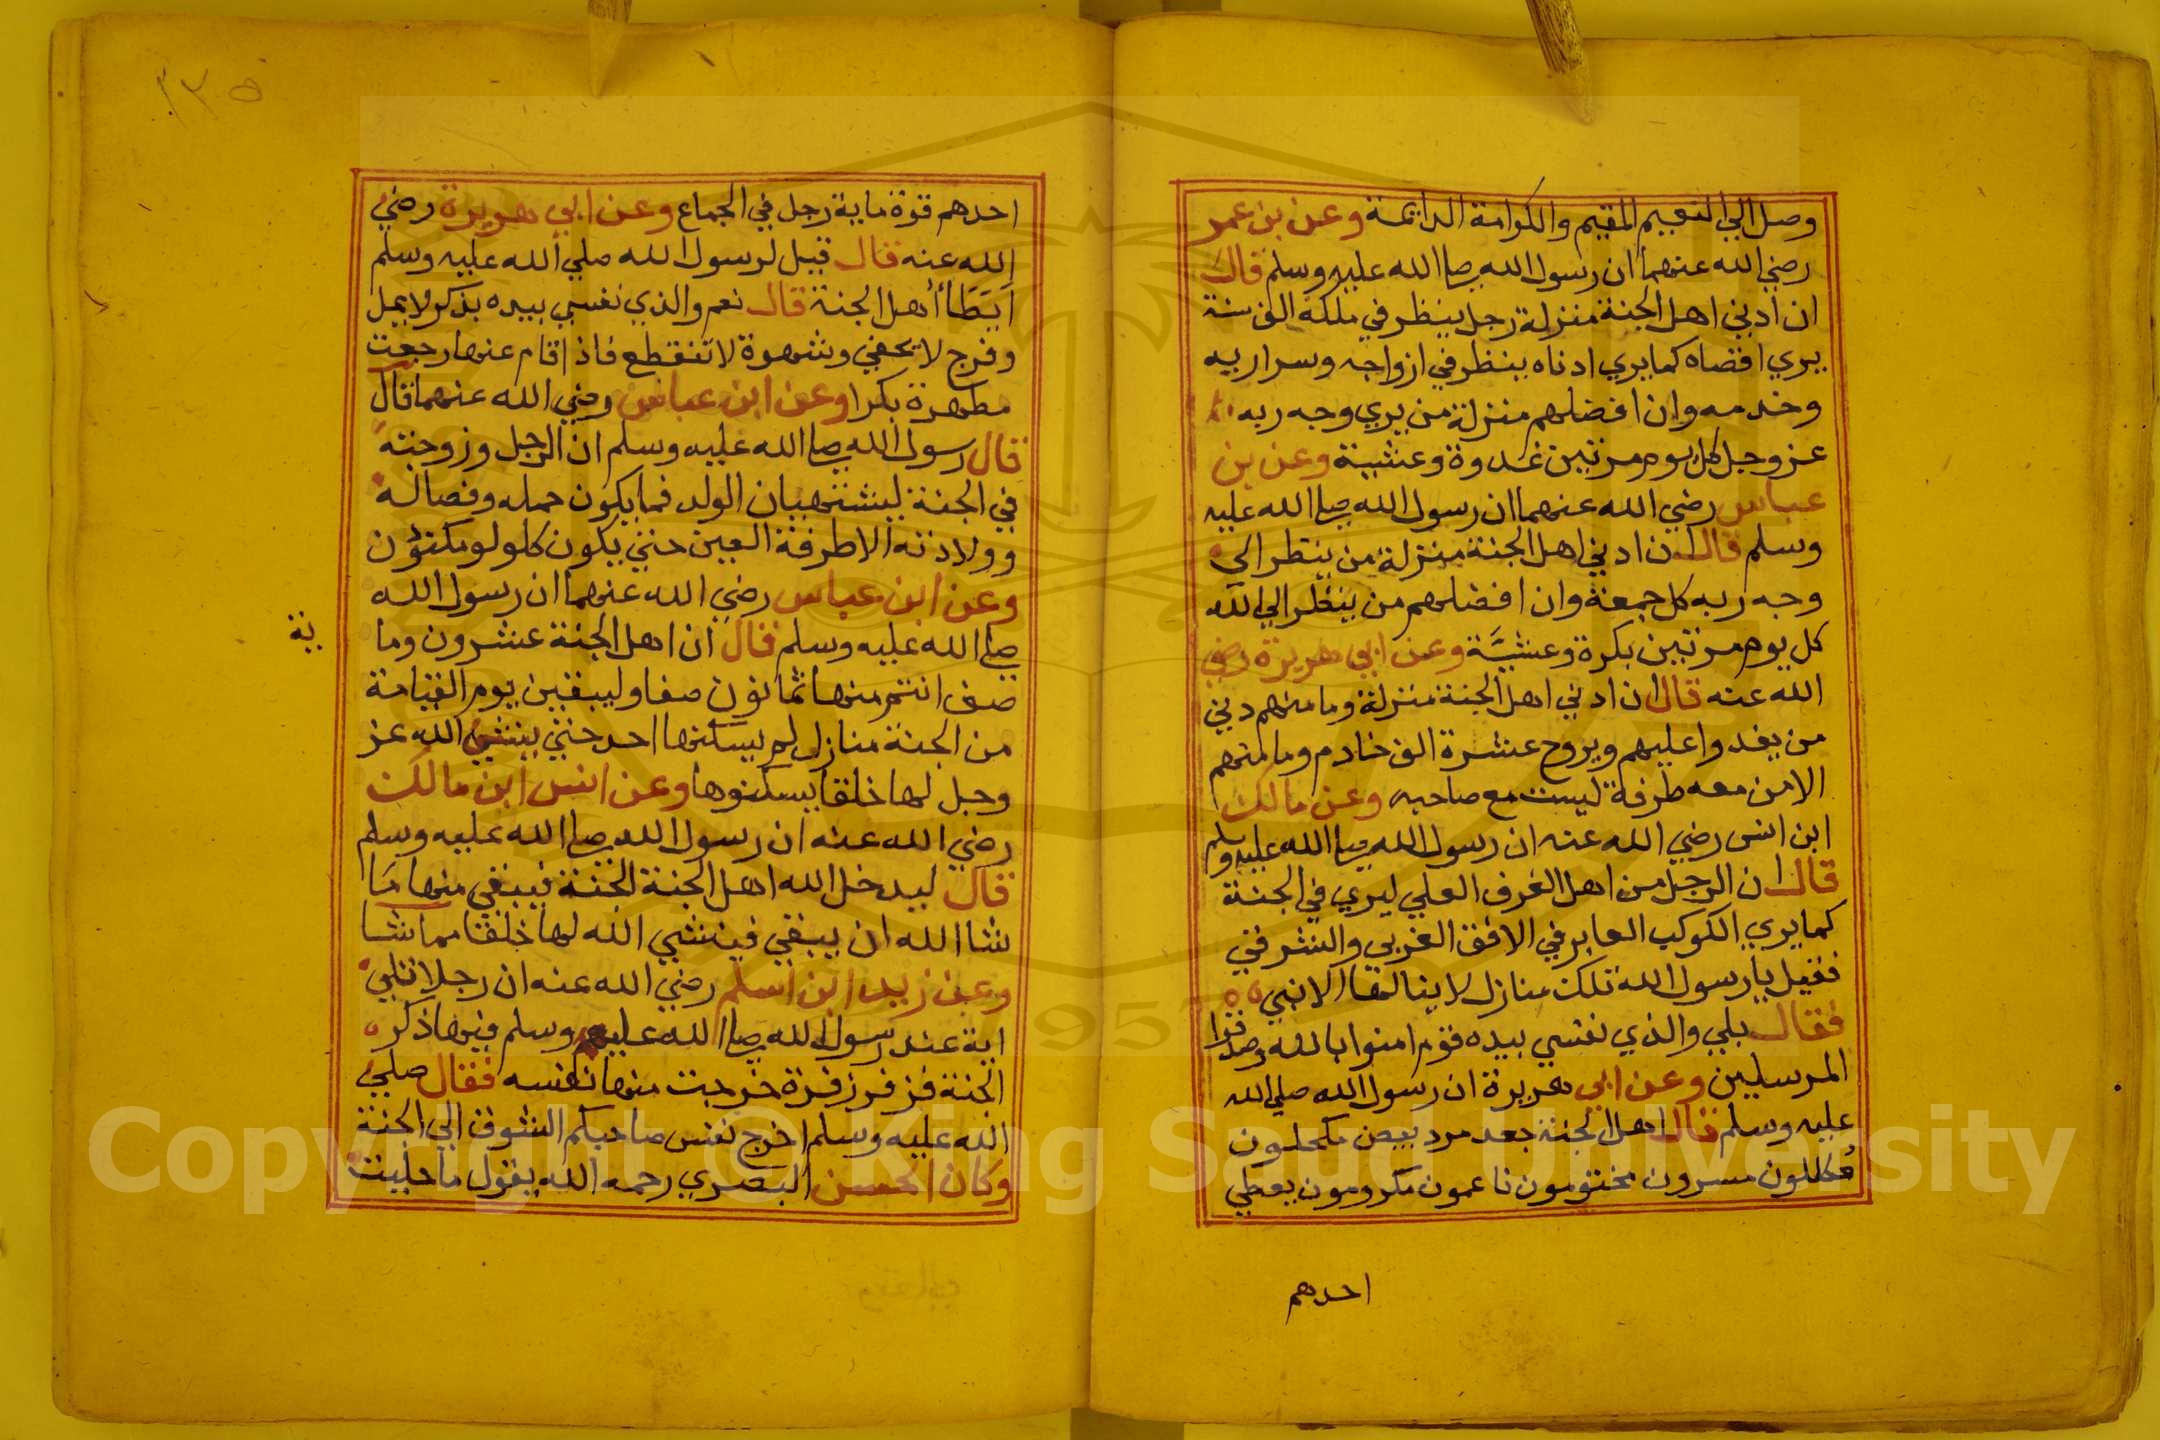 وصل الي النعيم المقيم والكرامة الدايمة وعن بن عمر
رضي الله عنهما ان رسول الله صلا الله عليه وسلم قال
ان ادني اهل الجنة منزلة رجل ينظر في ملكه الف سنة
يري اقصاه كما يري ادناه ينظر في ازواجه وسراريه
وخدمه وان افضلهم منزلة من يري وجه ربه
عز وجل كل يوم مرتين غدوة وعشية وعن بن
عباس رضي الله عنهما ان رسول الله صلا الله عليه
وسلم قال ان ادني اهل الجنة منزلة من ينظر الي
وجه ربه كل جمعة وان افضلهم من ينظر الي الله
كل يوم مرتين بكرة وعشيَّة وعن ابي هريرة رضي
الله عنه قال ان ادني اهل الجنة منزلة وما منهم دني
من يغدوا عليهم ويروح عشرة الف خادم وما منهم
الا من معه طرفة ليست مع صاحبه وعن مالك
ابن انس رضي الله عنه ان رسول الله صلا الله عليه وسلم
قال ان الرجل من اهل الغرف العلي ليري في الجنة
كما يري الكوكب الغابر في الافق الغربي والشرقي
فقيل يا رسول الله تلك منازل لا ينالها الا نبي
فقال بلي والذي نفسي بيده قوم امنوا بالله وصدقوا
المرسلين وعن ابي هريرة ان رسول الله صلي الله
عليه وسلم قال اهل الجنة جعد مرد بيض مكحلون
مكللون مسرون مختومون ناعمون مكرومون يعطي
احدهم
١٣٥
احدهم قوة ماية رجل في الجماع وعن ابي هريرة رضي
الله عنه قال قيل لرسول الله صلي الله عليه وسلم
ايَطَأ أهل الجنة قال نعم والذي نفسي بيده بذكر لا يمل
وفرج لا يحفي وشهوة لا تنقطع فاذا قام عنها رجعت
مطهرة بكرا وعن ابن عباس رضي الله عنهما قال
قال رسول الله صلا الله عليه وسلم ان الرجل وزوجته
في الجنة ليشتهيان الولد فما يكون حمله وفصاله
وولادته الا طرفة العين حتي يكون كلولو مكنون
وعن ابن عباس رضي الله عنهما ان رسول الله
صلا الله عليه وسلم قال ان اهل الجنة عشرون وما
ية
صف انتم منها ثمانون صفا وليبقين يوم القيامة
من الجنة منازل لم يسكنها احد حتي ينشي الله عز
وجل لها خلقا يسكنوها وعن انس ابن مالك
رضي الله عنه ان رسول الله صلا الله عليه وسلم
قال ليدخل الله اهل الجنة الجنة فيبقي منها مَا
شا الله ان يبقي فينشي الله لها خلقا مما شا
وعن زيد ابن اسلم رضي الله عنه ان رجلا تلي
اية عند رسول الله صلا الله عليه وسلم فيها ذكر
الجنة فزفر زفرة خرجت منها نفسه فقال صلي
الله عليه وسلم اخرج نفس صاحبكم الشوق الي الجنة
وكان الحسن البصري رحمه الله يقول ما حليت
Copyright © King Saud University
1957